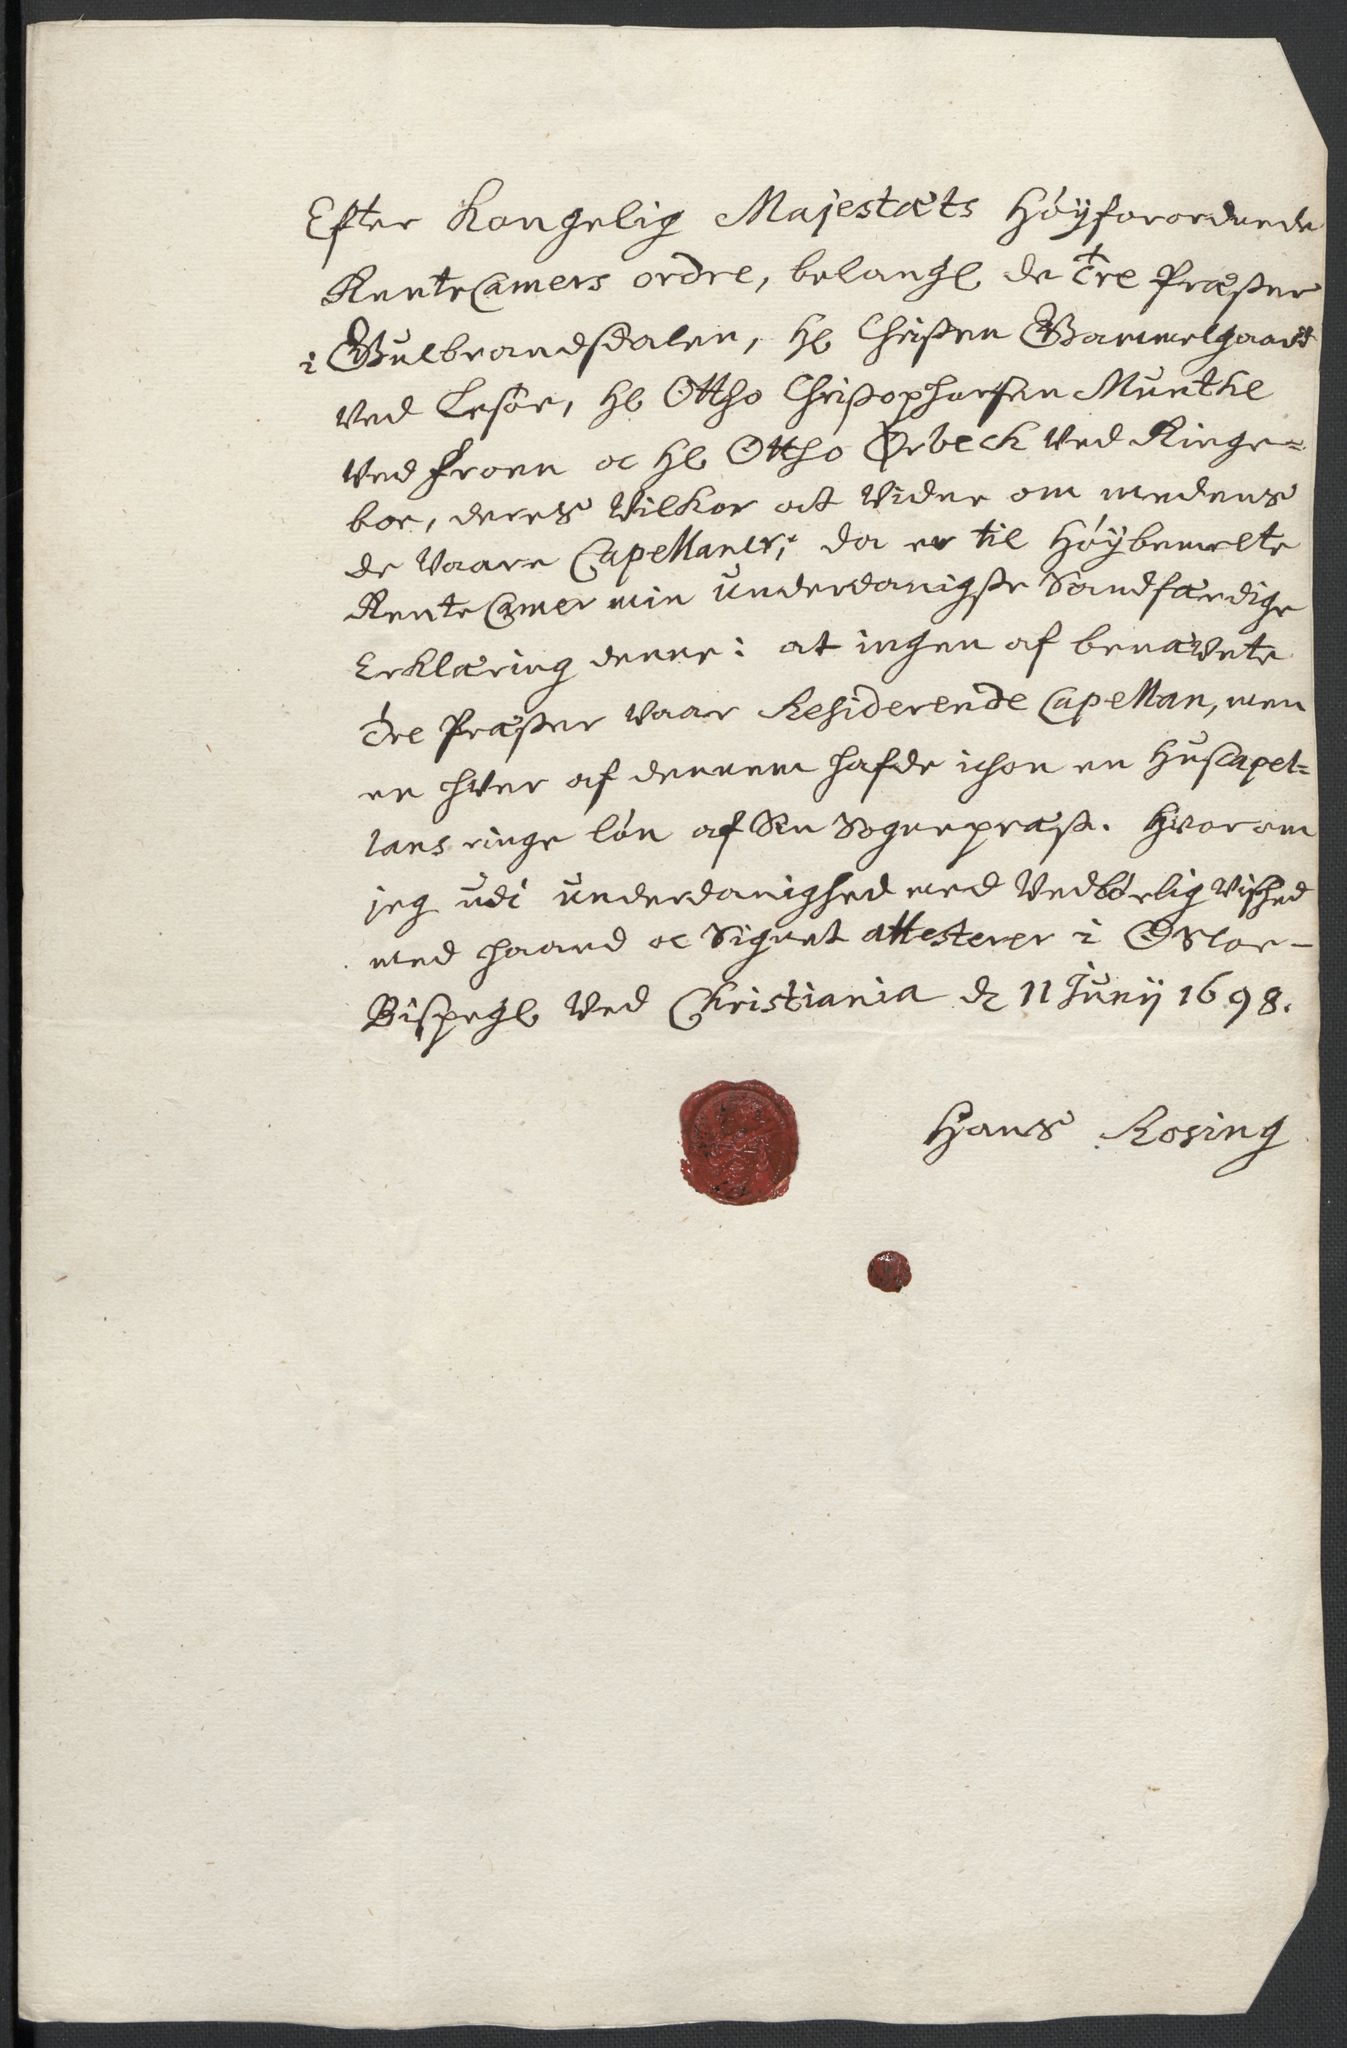 Efter Kongelig Majestæts Høyforordnede
RenteCamers ordre, belangl de Tre Præster
i Gulbrandsdalen, Hl Christen Gammelgaard
Ved Lesöe, Hl Ottho Christophersen Munthe
Ved Froen oc Hl Ottho Ørbeck Ved Ringe=
boe, deres Vilkor at Vide om medens
de Vaare Capellaner; da er til Høybemelte
RenteCamer min Underdanigste Sandfærdige
Erklæring denne: at ingen af benævnte
Tre Præster Vaar Residerende Capellan, men
en hver af dennem hafde ichon en Huscapel=
lans ringe lön af Sin Sognepræst. Hvorom
jeg udi Underdanighed med Vedbörlig Vished
med haand oc Signet attesterer i Osloe-
Bispegl Ved Christiania d 11 Junij 1698.
Hans Rosing